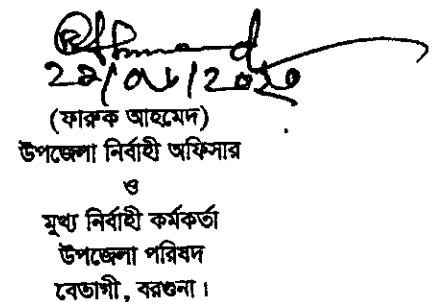 (ফারুক আহমেদ)
উপজেলা নির্বাহী অফিসার
ও
মুখ্য নির্বাহী কর্মকর্তা
উপজেলা পরিষদ
বেতাগী, বরগুনা।